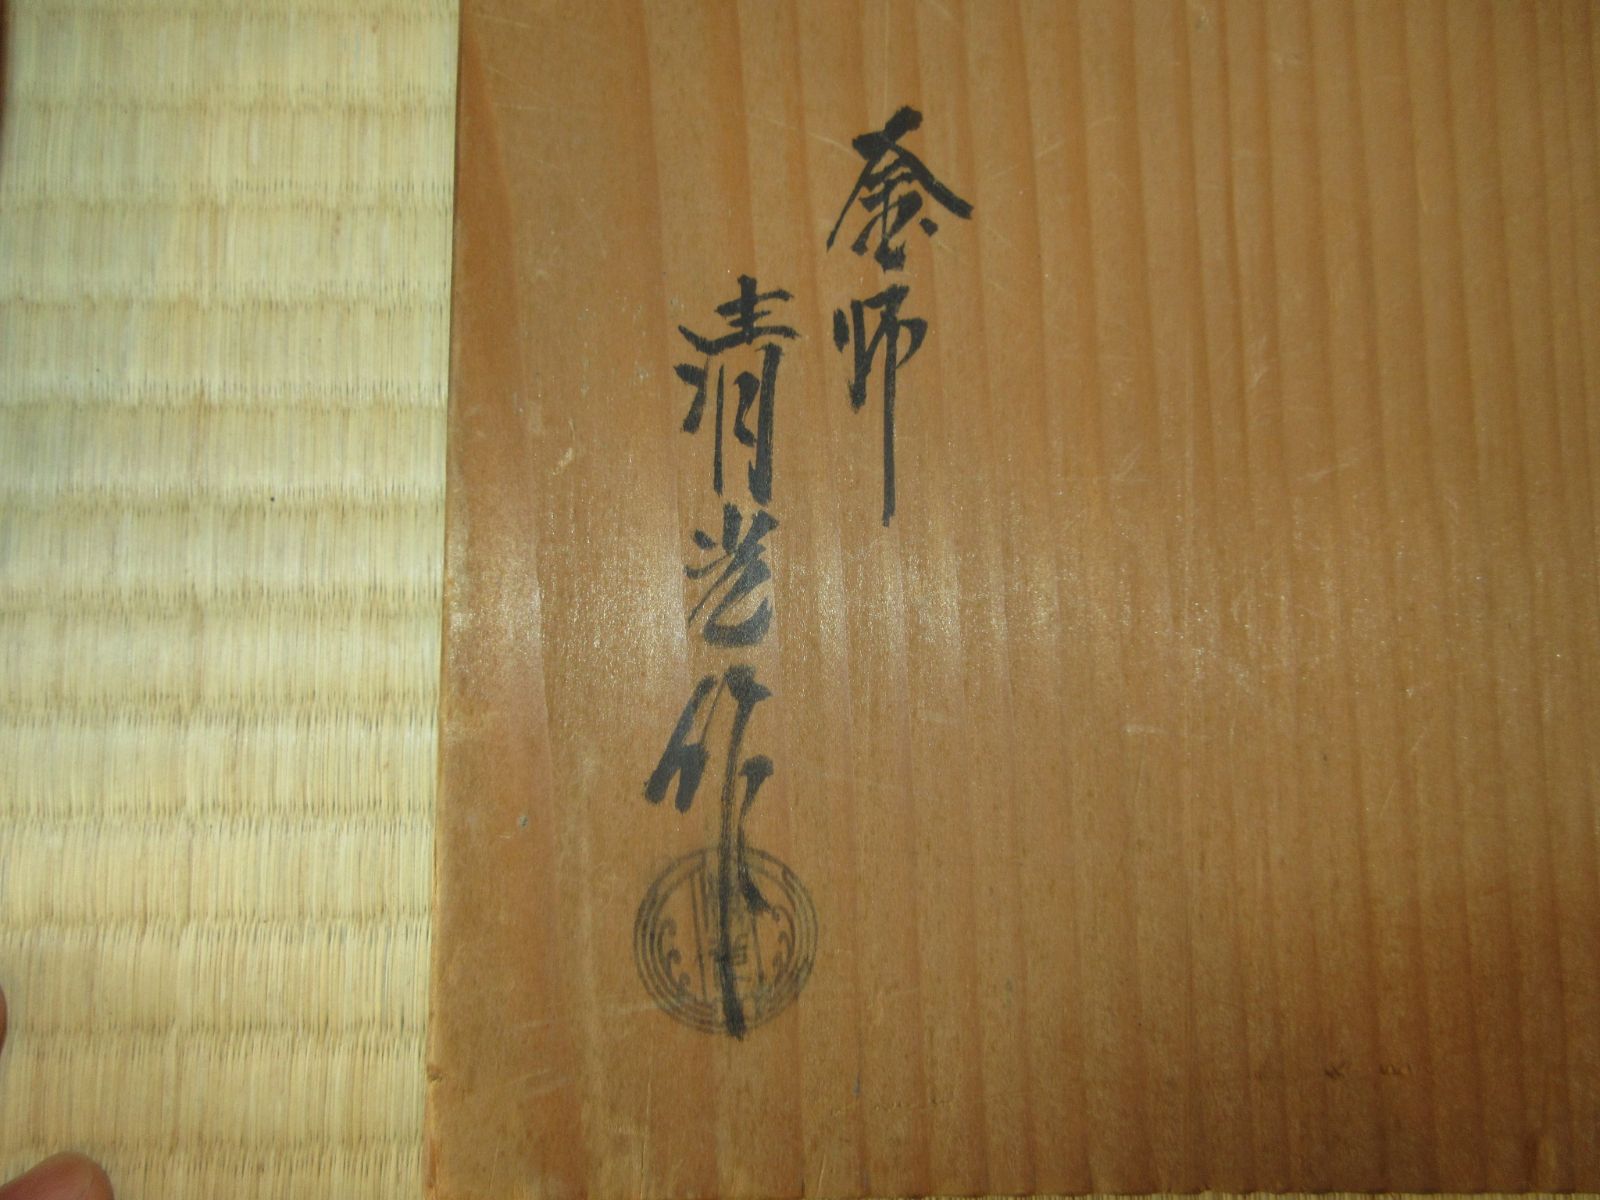 釜師
清光作